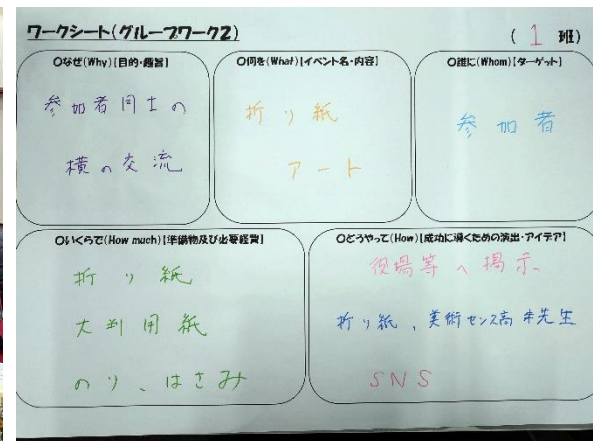 ワークシート(グループワーク2)
( 1 班)
○なぜ(Why)[目的・趣旨]
参加者同士の
横の交流
○何を(What)[イベント名・内容]
折り紙
アート
○誰に(Whom)[ターゲット]
参加者
○いくらで(How much)[準備物及び必要経費]
折り紙
大判用紙
のり、はさみ
○どうやって(How)[成功に導くための演出・アイデア]
役場等へ掲示、
折り紙、美術センス高 先生
SNS